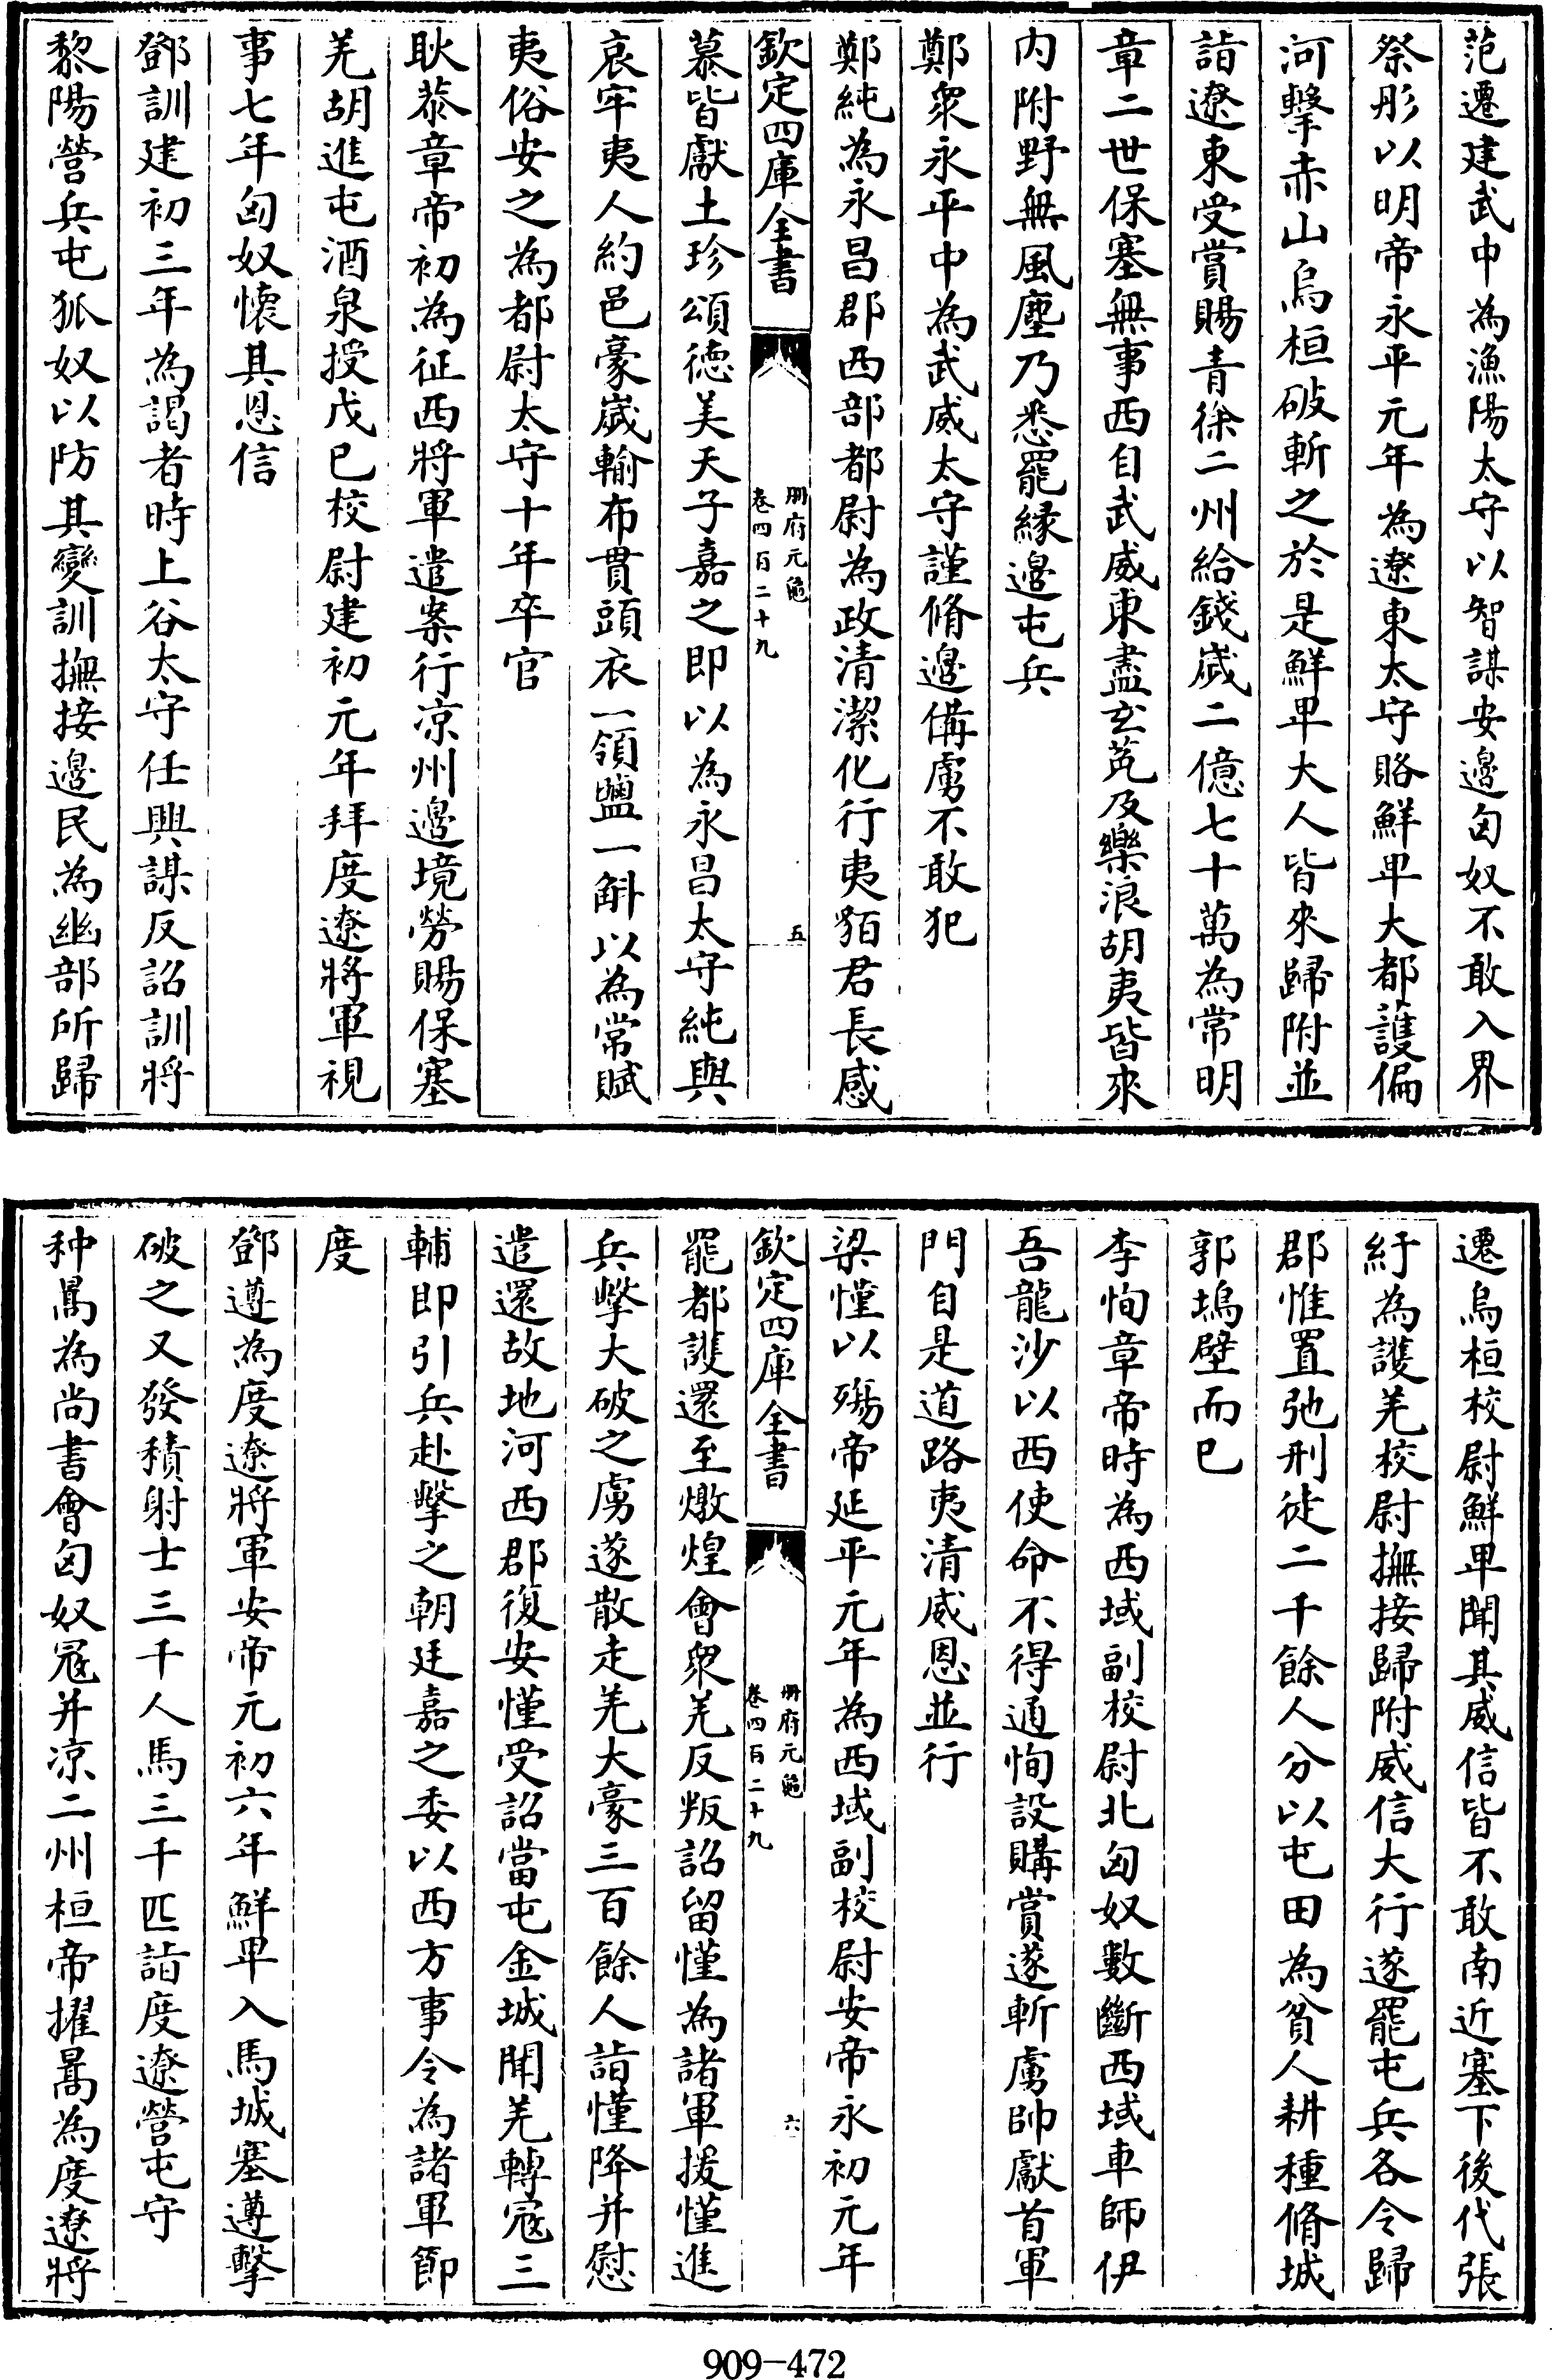 范遷建武中為漁陽太守以智謀安邊匈奴不敢入界
祭彤以明帝永平元年為遼東太守賂鮮卑大都護偏
河擊赤山烏桓破斬之於是鮮卑大人皆來歸附並
詣遼東受賞賜青徐二州給錢歲二億七十萬為常明
章二世保塞無事西自武威東盡玄菟及樂浪胡夷皆來
内附野無風塵乃悉罷緣邊屯兵
鄭衆永平中為武威太守謹脩邊備虜不敢犯
鄭純為永昌郡西部都尉為政清潔化行夷貊君長感
欽定四庫全書
冊府元龜
卷四百二十九
五
慕皆獻土珍頌德美天子嘉之即以為永昌太守純與
哀牢夷人約邑豪歲輸布貫頭衣一領鹽一斛以為常賦
夷俗安之為都尉太守十年卒官
耿恭章帝初為征西將軍遣案行凉州邊境勞賜保塞
羌胡進屯酒泉授戊己校尉建初元年拜度遼將軍視
事七年匈奴懷其恩信
鄧訓建初三年為謁者時上谷太守任興謀反詔訓將
黎陽營兵屯狐奴以防其變訓撫接邊民為幽部所歸
遷烏桓校尉鮮卑聞其威信皆不敢南近塞下後代張
紆為護羌校尉撫接歸附威信大行遂罷屯兵各令歸
郡惟置弛刑徒二千餘人分以屯田為貧人耕種脩城
郭塢壁而已
李恂章帝時為西域副校尉北匈奴數斷西域車師伊
吾龍沙以西使命不得通恂設購賞遂斬虜帥獻首軍
門自是道路夷清威恩並行
梁慬以殤帝延平元年為西域副校尉安帝永初元年
欽定四庫全書
冊府元龜
卷四百二十九
六
罷都護還至燉煌會衆羌反叛詔留慬為諸軍援慬進
兵擊大破之虜遂散走羌大豪三百餘人詣慬降并慰
遣還故地河西郡復安慬受詔當屯金城聞羌轉寇三
輔即引兵赴擊之朝廷嘉之委以西方事令為諸軍節
度
鄧遵為度遼將軍安帝元初六年鮮卑入馬城塞遵擊
破之又發積射士三千人馬三千匹詣度遼營屯守
种暠為尚書會匈奴寇并凉二州桓帝擢暠為度遼將
909-472